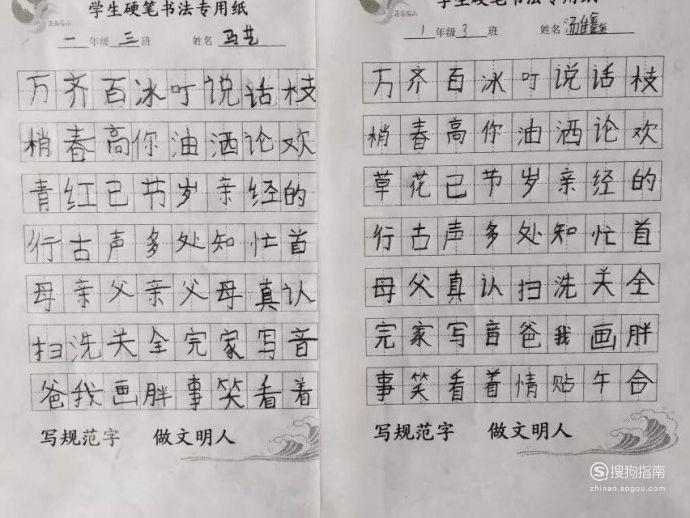 学生硬笔书法专用纸
一年级三班 姓名 马艺
万齐百冰叮说话枝
梢春高你油洒论欢
青红已节岁亲经的
行古声多处知忙首
母亲父亲父母真认
扫洗关全完家写音
爸我画胖事笑看着
写规范字 做文明人
学生硬笔书法专用纸
1年级3班 姓名 汤维鑫
万齐百冰叮说话枝
梢春高你油洒论欢
草花已节岁亲经的
行古声多处知忙首
母父真认扫洗关全
完家写音爸我画胖
事笑看着情贴午合
写规范字 做文明人
搜狗指南
zhinan.sogou.com